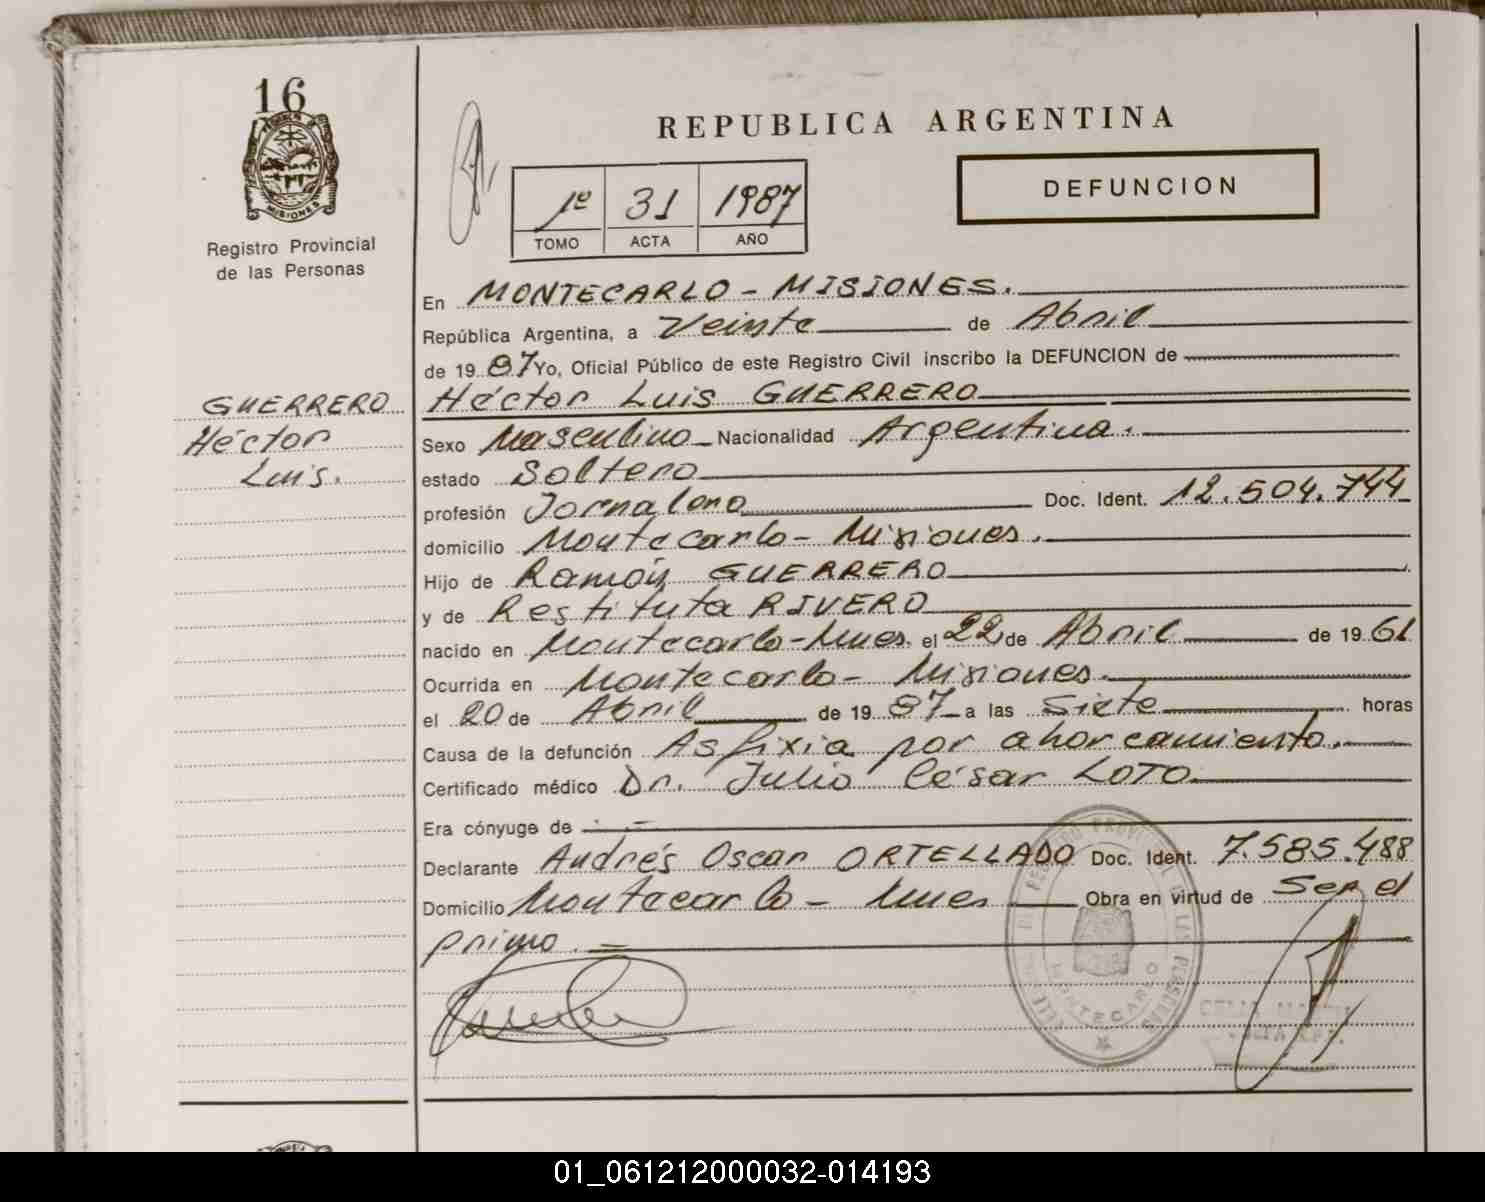 16
MISIONES
Registro Provincial
de las Personas
GUERRERO
Héctor
Luis.
REPUBLICA ARGENTINA
1º 31 1987
TOMO ACTA AÑO
DEFUNCION
En MONTECARLO - MISIONES.
República Argentina, a Veinte de Abril
de 19 87 Yo, Oficial Público de este Registro Civil inscribo la DEFUNCION de
Héctor Luis GUERRERO
Sexo Masculino Nacionalidad Argentina.
estado Soltero
profesión Jornalero Doc. Ident. 12.504.744
domicilio Montecarlo - Misiones.
Hijo de Ramón GUERRERO
y de Restituta RIVERO
nacido en Montecarlo - Mnes. el 22 de Abril de 19 61
Ocurrida en Montecarlo - Misiones.
el 20 de Abril de 19 87 a las Siete horas
Causa de la defunción Asfixia por ahorcamiento.
Certificado médico Dr. Julio César LOTO
Era cónyuge de
Declarante Andrés Oscar ORTELLADO Doc. Ident. 7.585.488
Domicilio Montecarlo - Mnes Obra en virtud de Ser el
primo.
MONTECARLO
CELIA
01_061212000032-014193